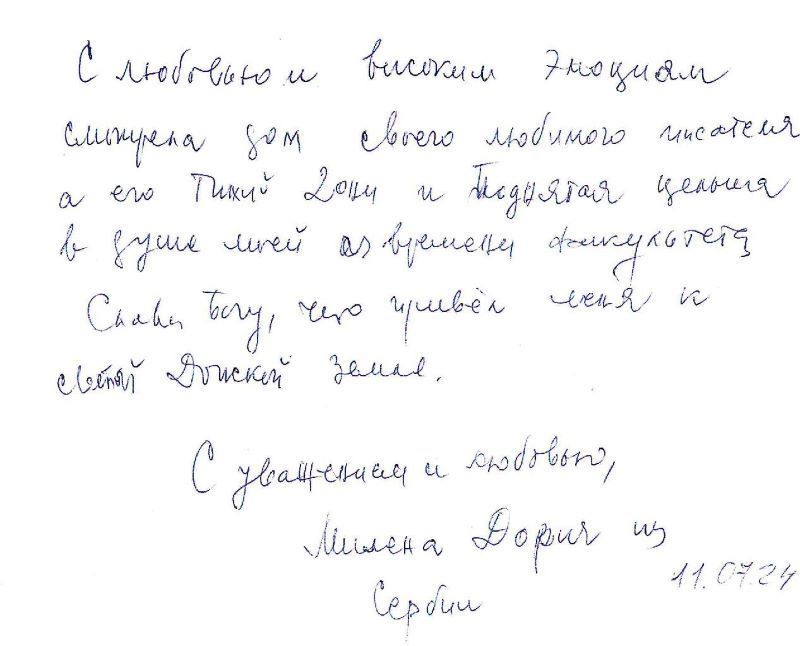 С любовью и високим эмоциям
смытрела дом своего любимого писателя
а его Тихий Дони и Поднятая целына
в душе моей из времени факультета
Слава Богу, что привёл меня к
светой Донской земле.
С уважением и любовью,
Милена Дорич из
Сербии
11.07.24